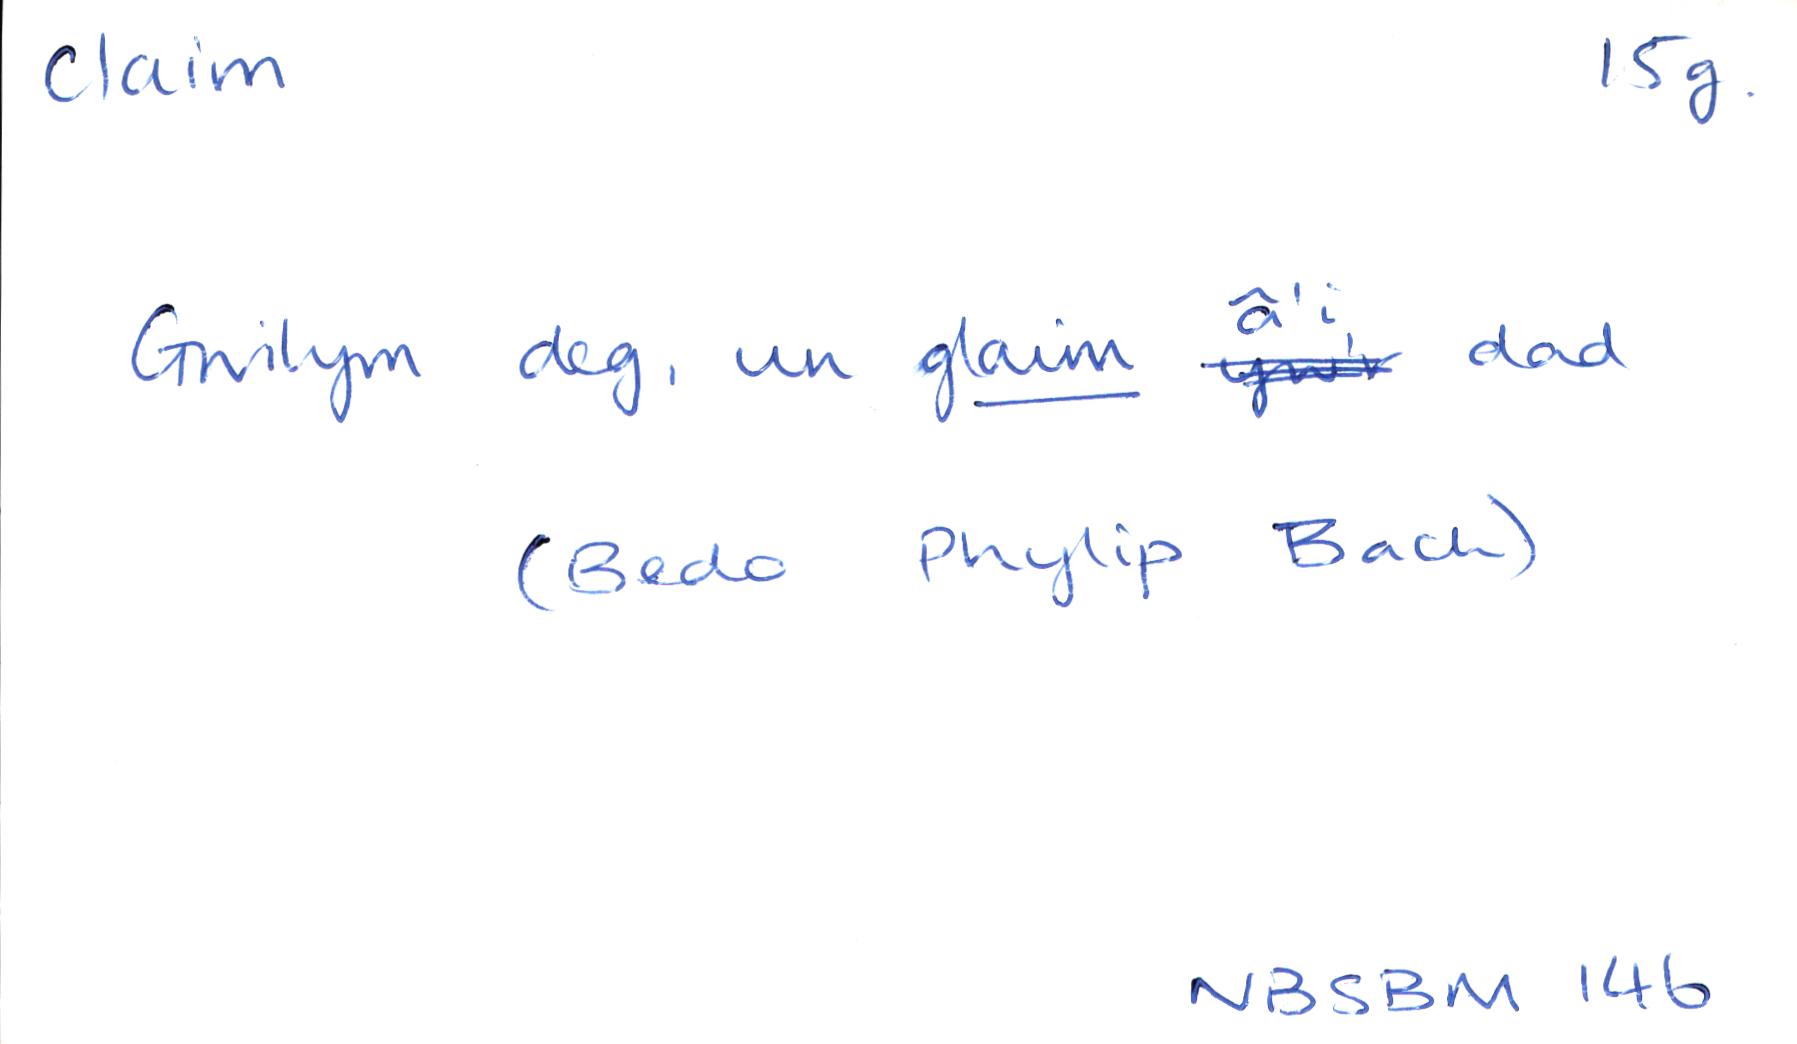 Claim 15g.
Gwilym deg, un glaim â'i dad
(Bedo Phylip Bach)
NBSBM 146